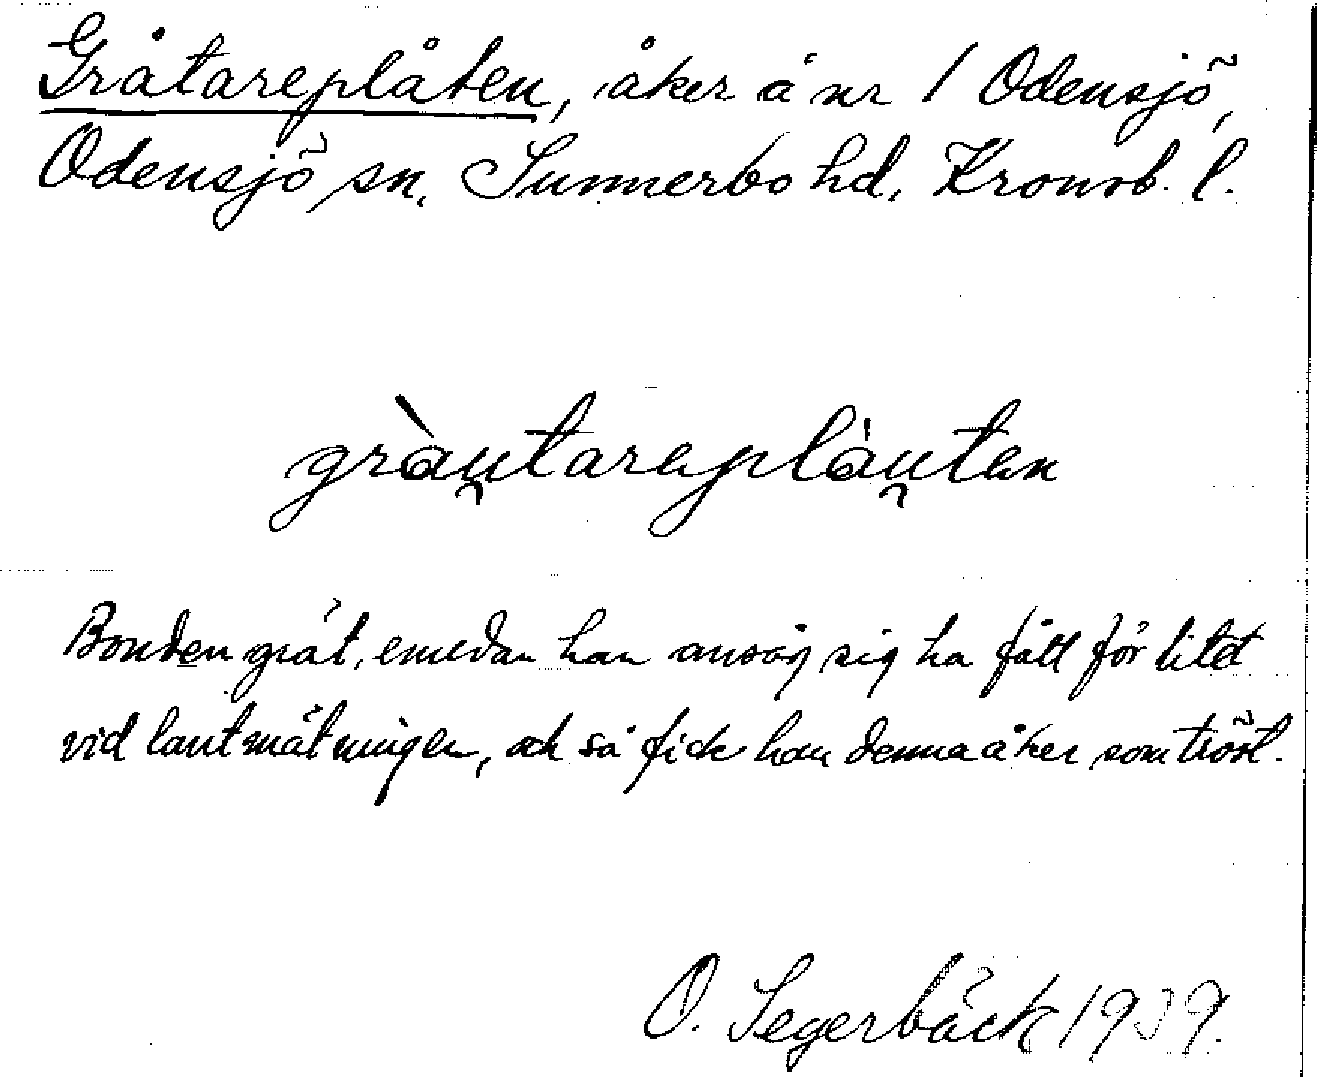 Gråtareplåten, åker å nr 1 Odensjö,
Odensjö sn, Sunnerbo hd, Kronob. l.
gràu̯tareplàu̯ten
Bonden grät, emedan han ansåg sig ha fått för litet
vid lantmätningen, och så fick han denna åker som tröst.
O. Segerbäck 1939.